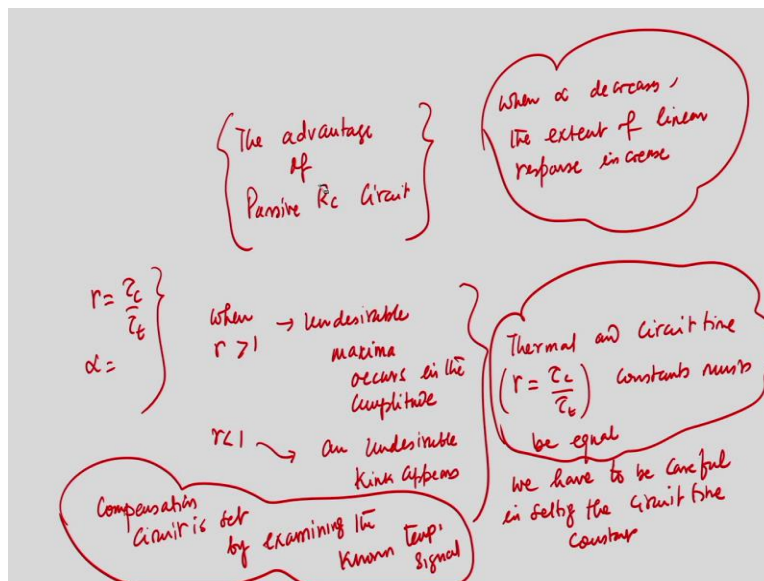 The advantage
of
Passive Rc Circuit
When α decreases,
the extent of linear
response increase
r = τc/τt
α =
when → Undesirable
r > 1 maxima
occurs in the
amplitude
r<1 → an Undesirable
Kink appears
Thermal and Circuit time
(r = τc/τt) constants must
be equal
we have to be careful
in setting the circuit time
constant
Compensation
Circuit is set
by examining the
known temp.
signal